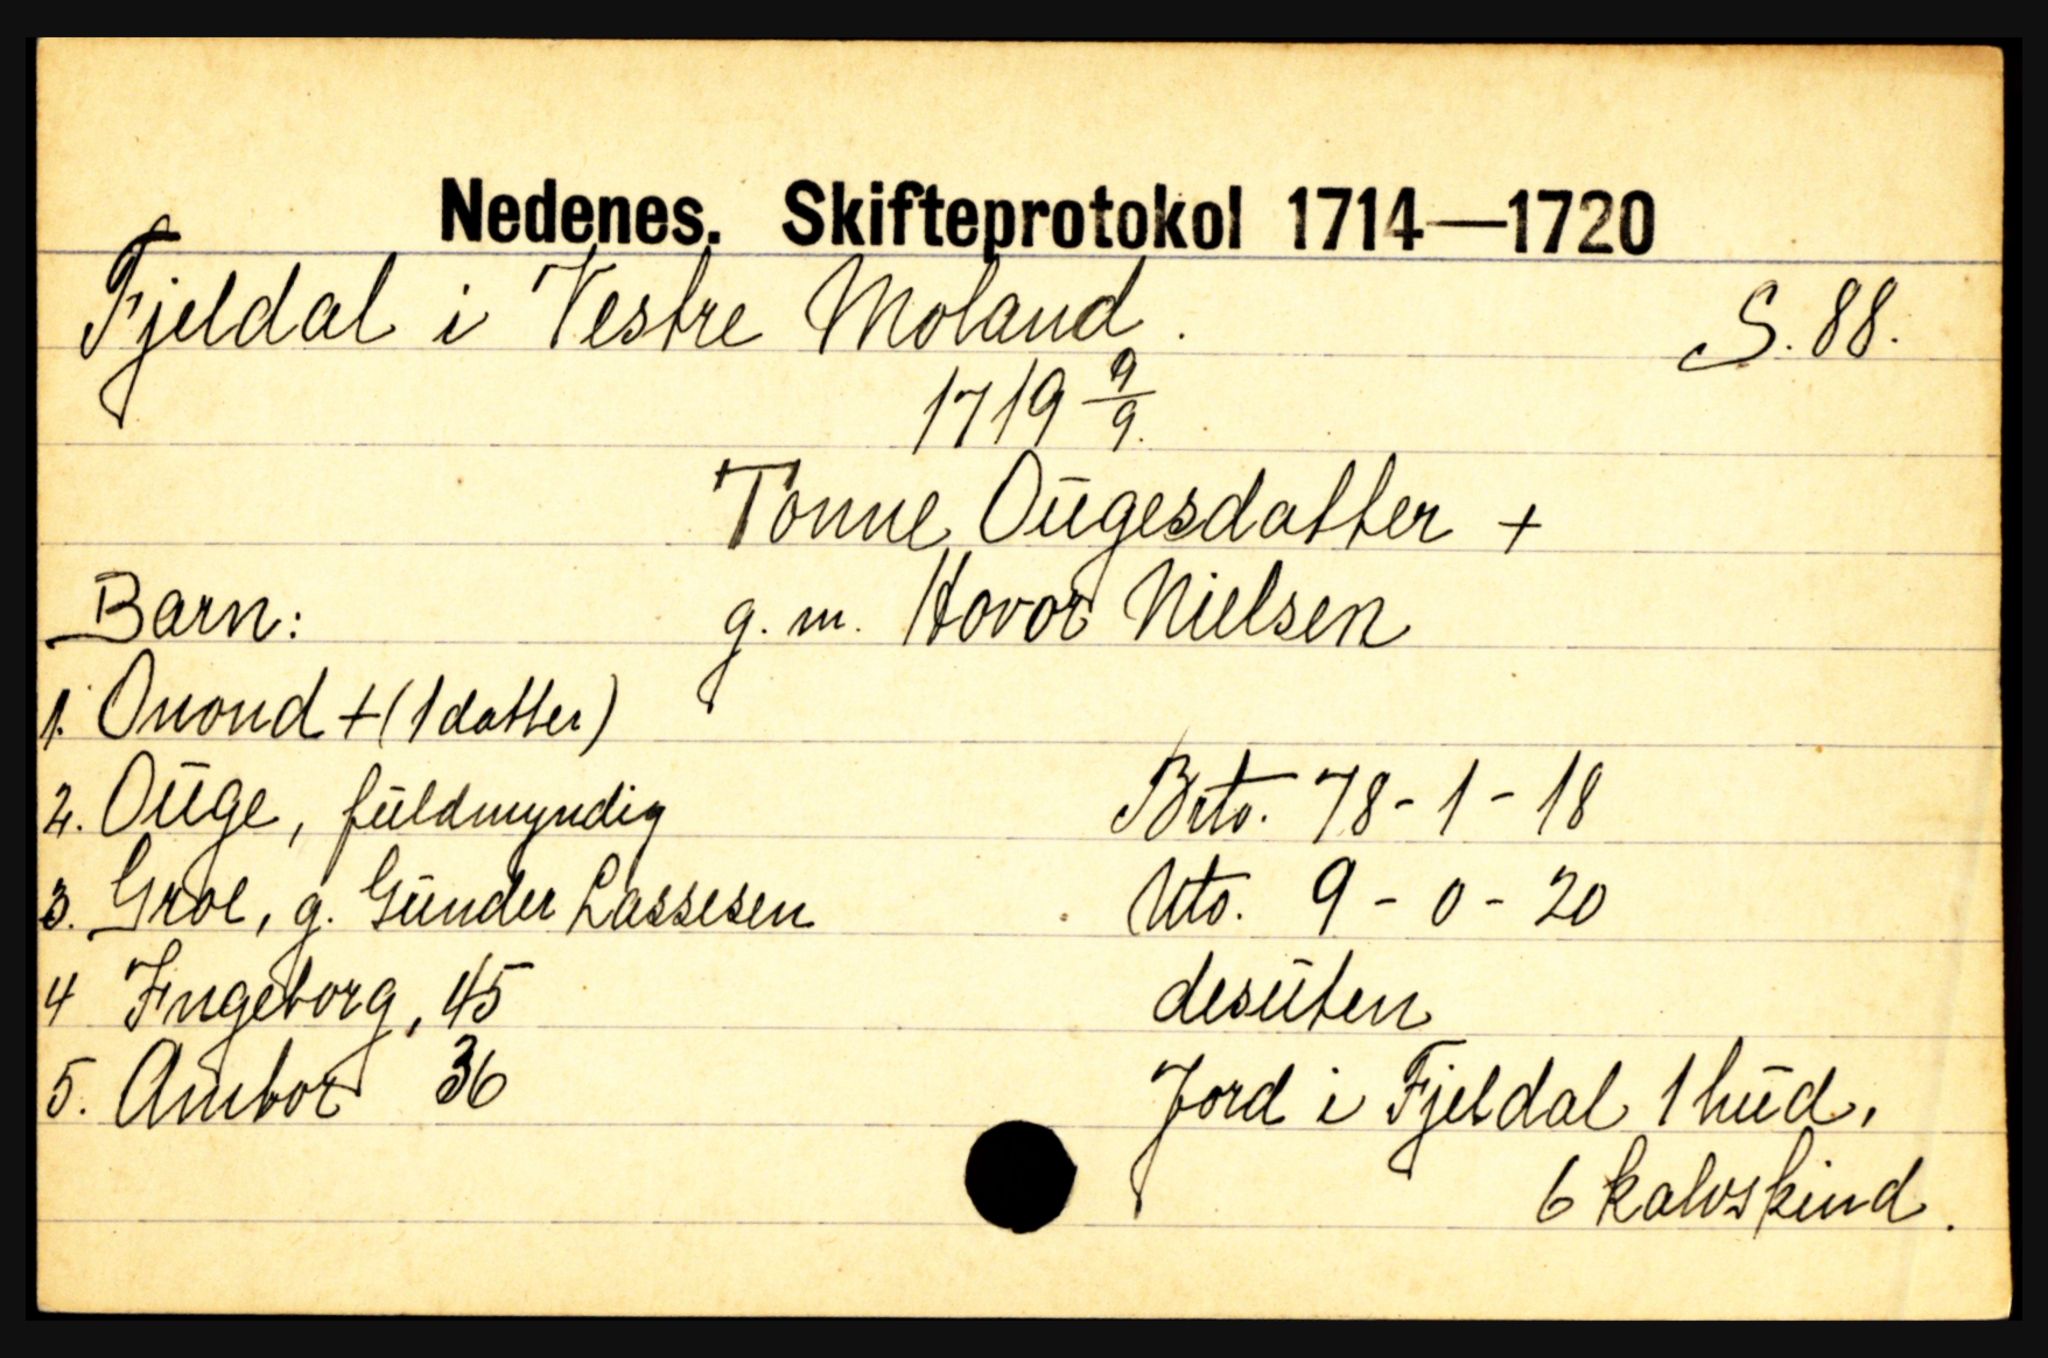 Nedenes. Skifteprotokol 1714—1720
Fjeldal i Vestre Moland. S. 88.
1719 9/9.
Tonne Ougesdatter +
Barn: g. m. Hovor Nielsen
1. Onond + (1 datter)
2. Ouge, fuldmyndig Brto. 78 - 1 - 18
3. Groe, g. Gunder Lassesen Nto. 9 - 0 - 20
4 Ingeborg, 45 desuten
5. Ambor 36 Jord i Fjeldal 1 hud,
6 kalvskind.